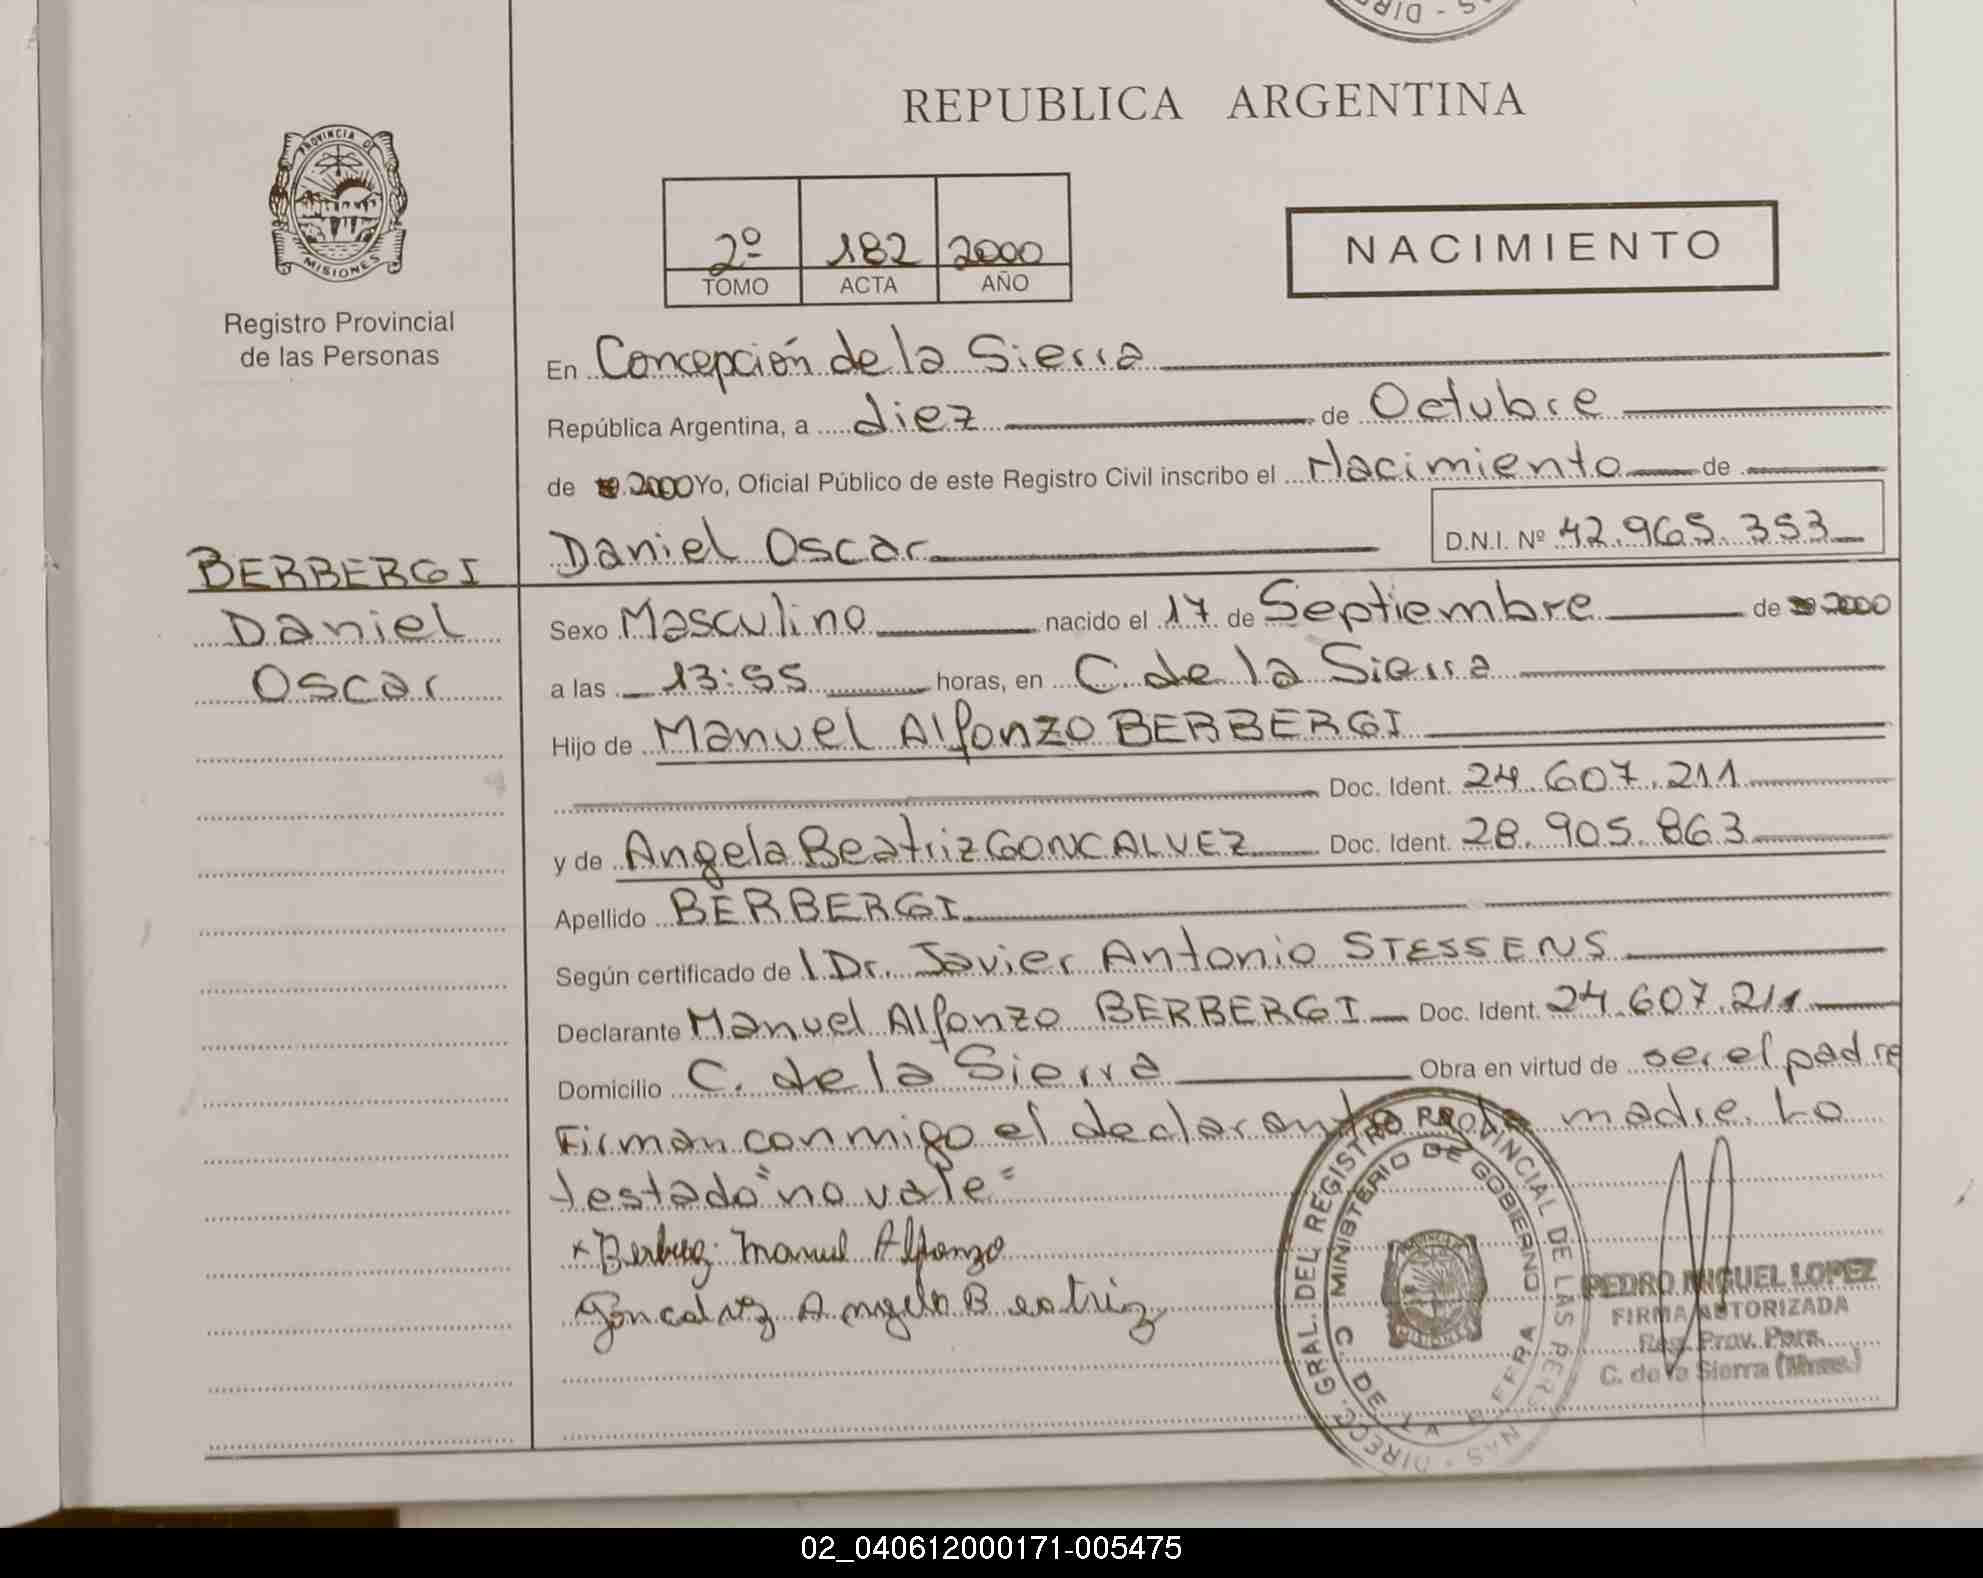 REPUBLICA ARGENTINA
PROVINCIA DE
MISIONES
Registro Provincial
de las Personas
2º 182 2000
TOMO ACTA AÑO
NACIMIENTO
En Concepción de la Sierra
República Argentina, a diez de Octubre
de 2000 Yo, Oficial Público de este Registro Civil inscribo el Nacimiento de
Daniel Oscar D.N.I. Nº 42.965.353
BERBERGI
Daniel
Oscar
Sexo Masculino nacido el 17 de Septiembre de 2000
a las 13:55 horas, en C. de la Sierra
Hijo de Manuel Alfonzo BERBERGI
Doc. Ident. 24.607.211
y de Angela Beatriz GONCALVEZ Doc. Ident. 28.905.863
Apellido BERBERGI
Según certificado de l Dr. Javier Antonio STESSENS
Declarante Manuel Alfonzo BERBERGI Doc. Ident. 24.607.211
Domicilio C. de la Sierra Obra en virtud de ser el padre
Firman conmigo el declarante madre. Lo
testado "no vale"
Manuel Alfonzo
Goncalvez Angela Beatriz
DIRECC. GRAL. DEL REGISTRO PROVINCIAL DE LAS PERSONAS
MINISTERIO DE GOBIERNO
C. DE LA SIERRA
PEDRO MIGUEL LOPEZ
FIRMA AUTORIZADA
Reg. Prov. Pers.
C. de la Sierra (Mnes.)
02_040612000171-005475